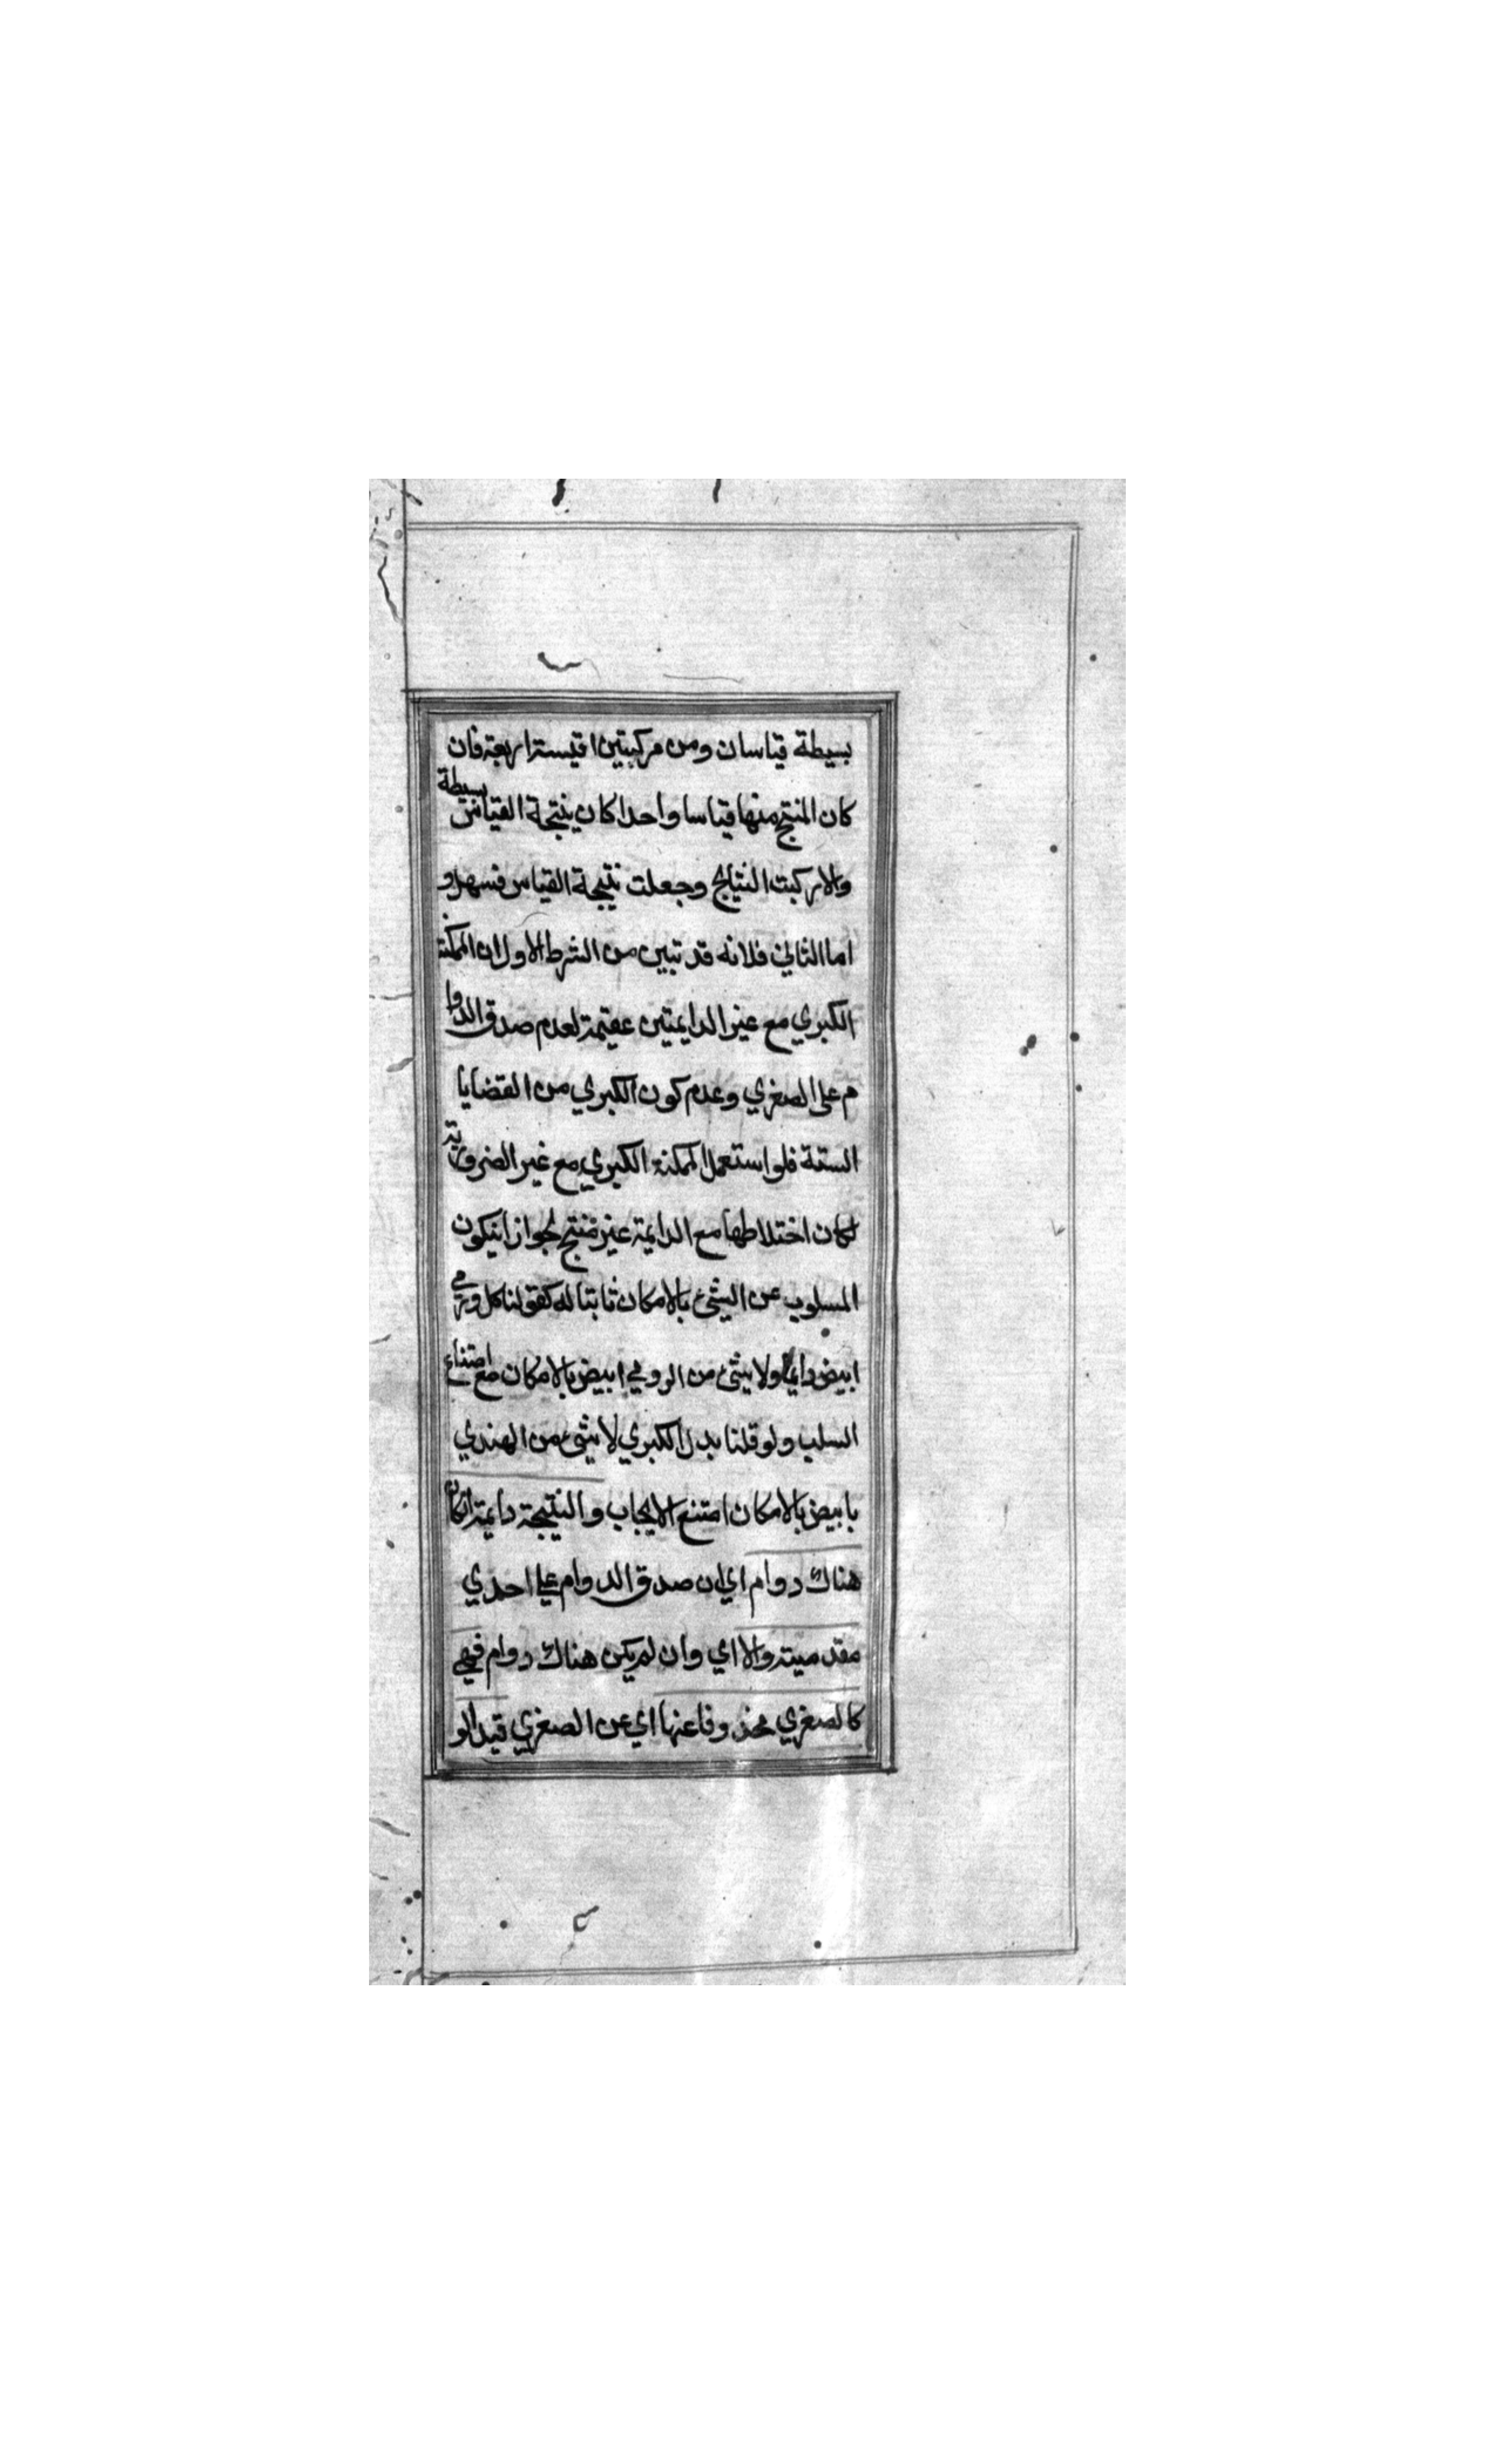 بسيطة قياسان ومن مركبتين اقيسة اربعة فان
كان المنتج منها قياسا واحدا كان نتيجة القياس بسيطة
والا ركبت النتايج وجعلت نتيجة القياس فسهل و
اما الثاني فلانه قد تبين من الشرط الاول ان الممكنة
الكبري مع غير الدايمتين عقيمة لعدم صدق الدوا
م علي الصغري وعدم كون الكبري من القضايا
الستة فلو استعمل الممكنة الكبري مع غير الضرورية
لكان اختلاطها مع الدايمة غير منتج لجواز انيكون
المسلوب عن الشئ بالامكان ثابتا له كقولنا كل رومي
ابيض دايما ولا شئ من الرومي ابيض بالامكان مع امتناع
السلب ولو قلنا بدل الكبري لا شئ من الهندي
بابيض بالامكان امتنع الايجاب والنتيجة دايمة انكان
هناك دوام اي ان صدق الدوام علي احدي
مقدميته والا اي وان لم يكن هناك دوام فهي
كالصغري محذوفا عنها اي عن الصغري قيد الو